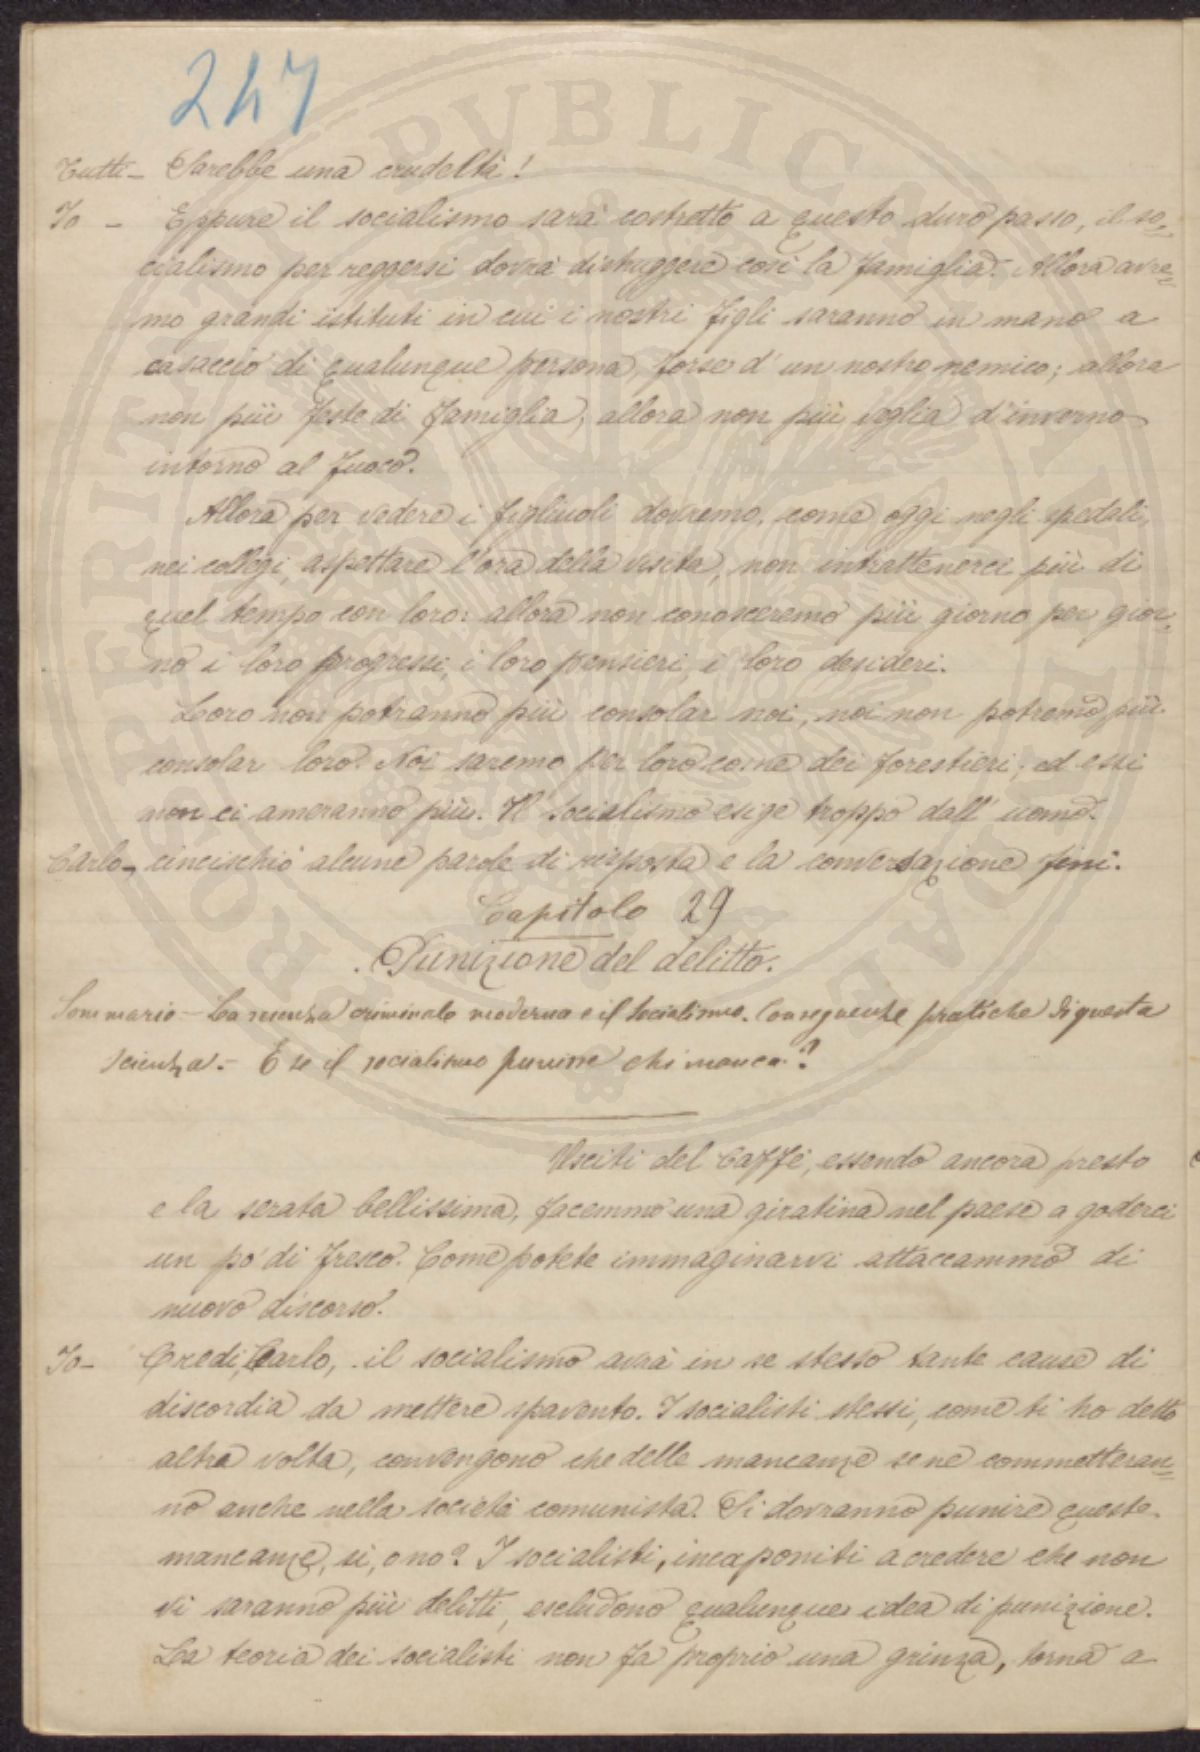 247
Tutti - Sarebbe una crudeltà!
Io - Eppure il socialismo sarà costretto a questo duro passo, il so=
cialismo per reggersi dovrà distruggere così la famiglia. Allora avre=
mo grandi istituti in cui i nostri figli saranno in mano a
casaccio di qualunque persona, forse d'un nostro nemico; allora
non più feste di famiglia; allora non più veglia d'inverno
intorno al fuoco.
Allora per vedere i figliuoli dovremo, come oggi negli spedali,
nei collegi, aspettare l'ora della visita, non intrattenerci più di
quel tempo con loro: allora non conosceremo più giorno per gior=
no i loro progressi, i loro pensieri, i loro desideri.
Loro non potranno più consolar noi, noi non potremo più
consolar loro. Noi saremo per loro come dei forestieri; ed essi
non ci ameranno più. Il Socialismo esige troppo dall'uomo.
Carlo - cincischiò alcune parole di risposta e la conversazione finì.
Capitolo 29
Punizione del delitto.
Sommario - La scienza criminale moderna e il Socialismo. Conseguenze pratiche di questa
scienza. - E se il socialismo punisse chi manca?
Usciti del Caffè, essendo ancora presto
e la serata bellissima, facemmo una giratina nel paese a goderci
un pò di fresco. Come potete immaginarvi attaccammo di
nuovo discorso.
Io - Credi, Carlo, il socialismo avrà in se stesso tante cause di
discordia da mettere spavento. I socialisti stessi, come ti ho detto
altra volta, convengono che delle mancanze se ne commetteran=
no anche nella società comunista. Si dovranno punire queste
mancanze, si, o no? I socialisti, incaponiti a credere che non
vi saranno più delitti, escludono qualunque idea di punizione.
La teoria dei socialisti non fa proprio una grinza, torna a
PROSPERITATI PVBLICAE AVGENDAE